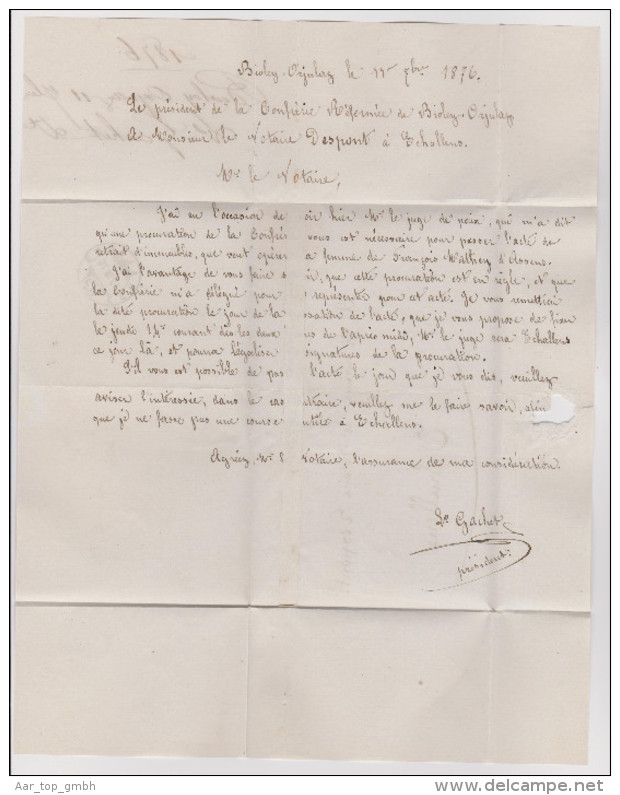 1876
Bioley-Orjulaz le 11e 7bre 1876.
Le président de la Confrérie Réformée de Bioley-Orjulaz
A Monsieur le Notaire Despont à Echallens.
Mr. le Notaire,
J'ai eu l'occasion de oir hier Mr. le juge de paix, qui m'a dit
qu'une procuration de la Confré vous est nécessaire pour passer l'acte de
retrait d'immeubles, que veut opérer a femme de François Mathey d'Assens.
J'ai l'avantage de vous faire s ir, que cette procuration est en règle, et que
la Confrérie m'a délégué pour représenter pour cet acte. Je vous remettrai
la dite procuration le jour de la sation de l'acte, que je vous propose de fixer
le jeudi 14e courant dès les deux es de l'après midi, Mr. le juge sera Echallens
ce jour là, et pourra légaliser signatures de la procuration.
S'il vous est possible de pas l'acte le jour que je vous dis, veuillez
aviser l'intéressée, dans le cas traire, veuillez me le faire savoir, afin
que je ne fasse pas une course utile à Echallens.
Agréez, Mr. l Notaire, l'assurance de ma considération.
Ls. Gachet
président.
Aar_top_gmbh
www.delcampe.net